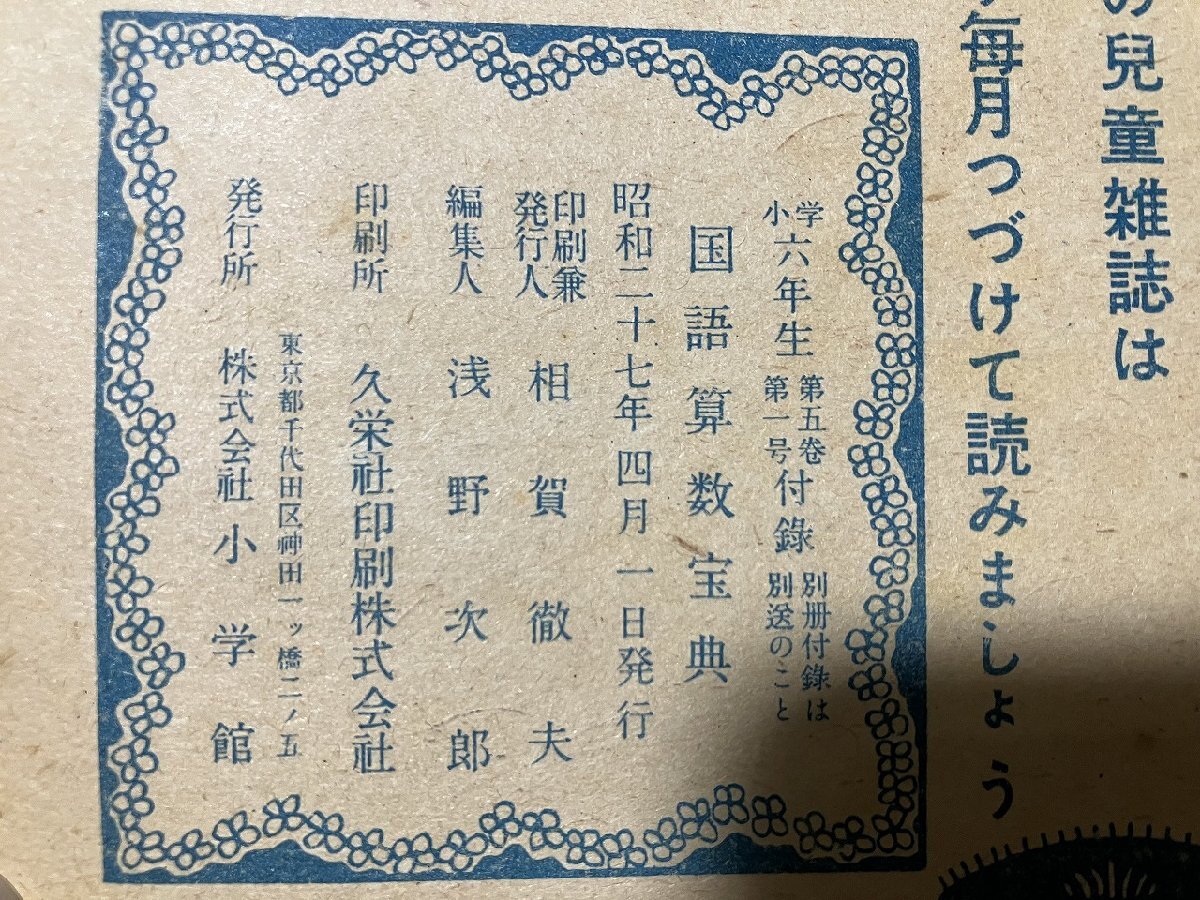 兒童雑誌は
毎月つづけて読みましょう
小学六年生 第五巻第一号付錄 別冊付錄は別送のこと
国語算数宝典
昭和二十七年四月一日発行
印刷兼発行人 相賀徹夫
編集人 浅野次郎
印刷所 久栄社印刷株式会社
東京都千代田区神田一ッ橋二ノ五
発行所 株式会社小学館